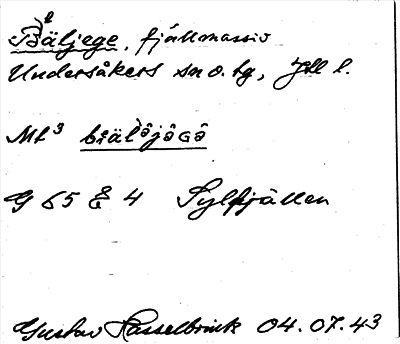 Bäljege, fjällmassiv
Undersåkers sn o. tg, Jtl l.
Mt³
G 65 E 4 Sylfjällen
Gustav Hasselbrink 04.07.43